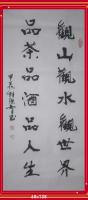 觀山觀水觀世界
品茶品酒品人生